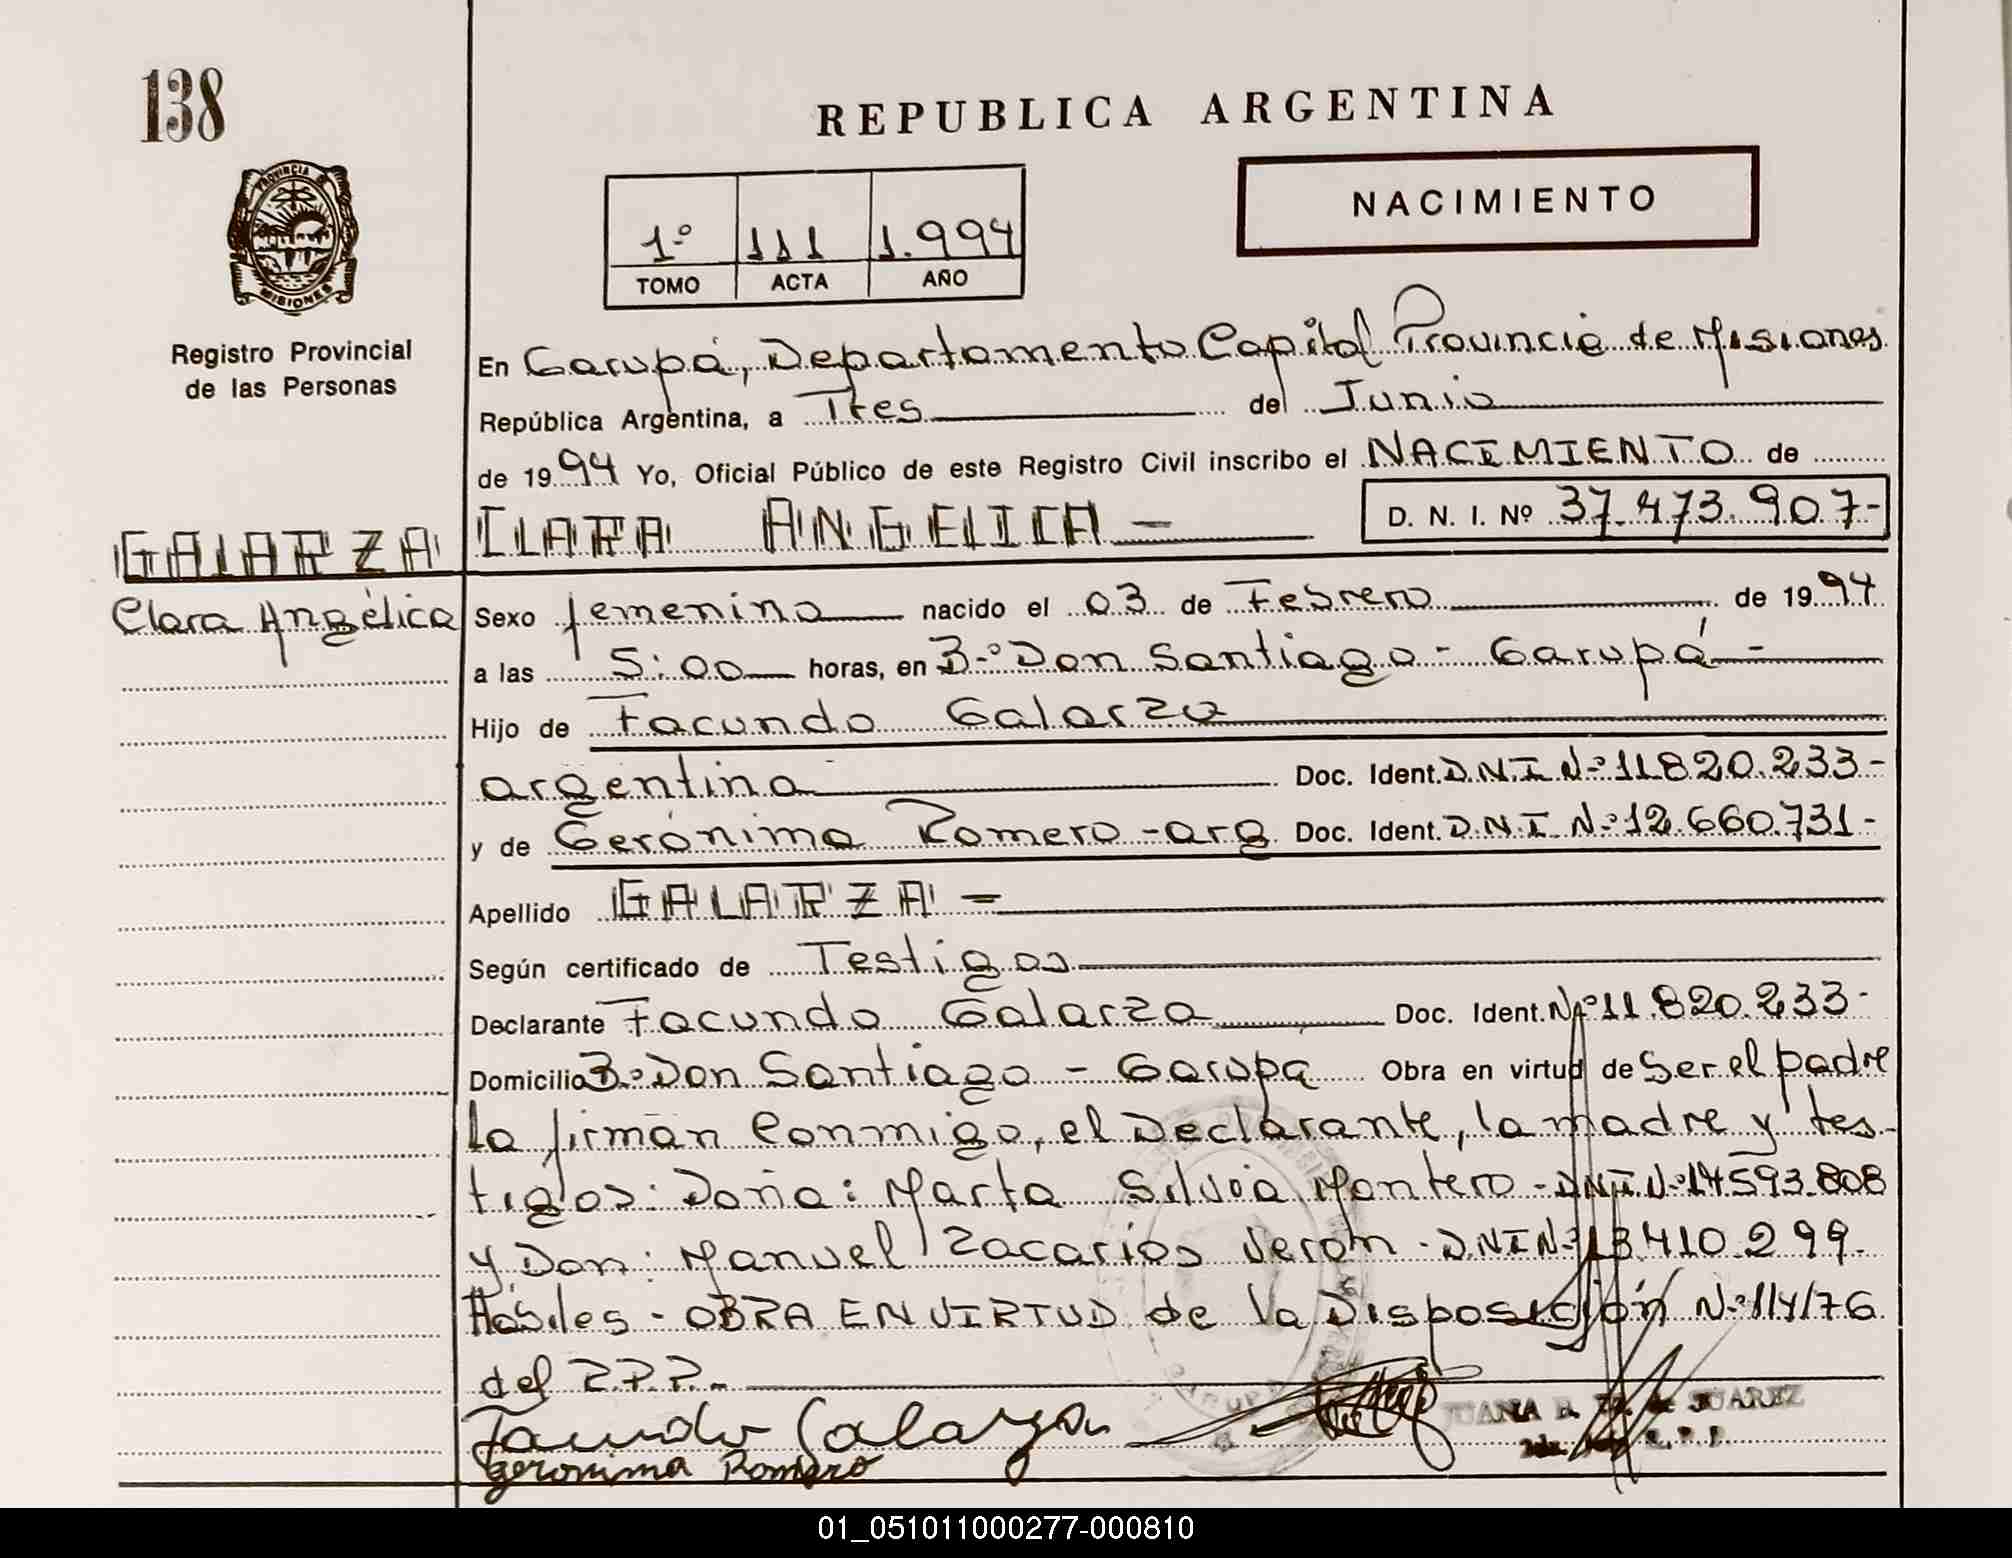 138
REPUBLICA ARGENTINA
PROVINCIA DE
MISIONES
Registro Provincial
de las Personas
1º 111 1.994
TOMO ACTA AÑO
NACIMIENTO
En Garupá, Departamento Capital Provincia de Misiones
República Argentina, a Tres de Junio
de 1994 Yo, Oficial Público de este Registro Civil inscribo el NACIMIENTO de
D. N. I. Nº 37.473.907-
GALARZA CLARA ANGELICA -
Clara Angélica
Sexo femenino nacido el 03 de Febrero de 1994
a las 5:00 horas, en Bº Don Santiago - Garupá -
Hijo de Facundo Galarza
argentina Doc. Ident. D.N.I Nº 11.820.233-
y de Gerónima Romero - arg Doc. Ident. D.N.I. Nº 12.660.731-
Apellido GALARZA -
Según certificado de Testigos
Declarante Facundo Galarza Doc. Ident. Nº 11.820.233-
Domicilio Bº Don Santiago - Garupá Obra en virtud de Ser el padre
La firman Conmigo, el Declarante, la madre y tes-
tigos: Doña: Marta Silvia Montero - DNI. Nº 14593.808
y Don: Manuel Zacarias Verón - DNI Nº 13.410.299-
Hábiles - OBRA EN VIRTUD de la Disposición Nº 114/76
del R.P.P.-
Facundo Galarza
Geronima Romero
JUANA de JUAREZ
GARUPA
01_051011000277-000810